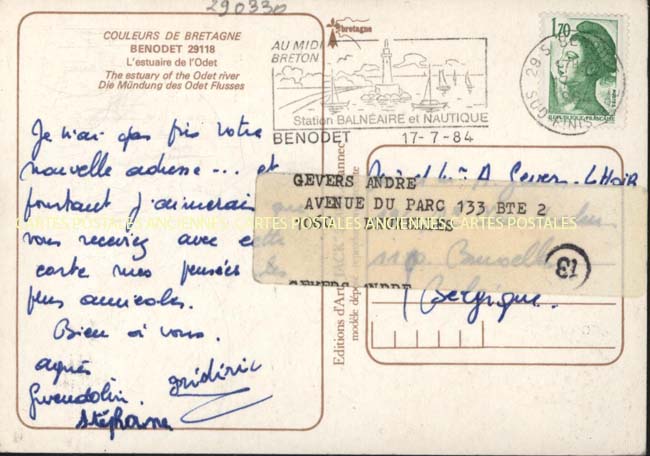 290330
COULEURS DE BRETAGNE
BENODET 29118
L'estuaire de l'Odet
The estuary of the Odet river
Die Mündung des Odet Flusses
bretagne
AU MIDI
BRETON
Station BALNÉAIRE et NAUTIQUE
BENODET 17-7-84
29 S
FINIS
1,70
REPUBLIQUE FRANÇAISE
Je n'ai pas pris votre
nouvelle adresse... et
pourtant j'aimerais
vous receviez avec cette
carte mes pensées les
plus amicales.
Bien à vous.
agnès
frédéric
Gwendolin.
Stéphanie
Editions d'Art JACK
modèle déposé
et A. Gevers-LHOIR
GEVERS ANDRE
AVENUE DU PARC 133 BTE 2
CARTES POSTALES ANCIENNES CARTES POSTALES ANCIENNES CARTES POSTALES ANCIENNES
13
Bruxelles
Belgique.
GEVERS ANDRE